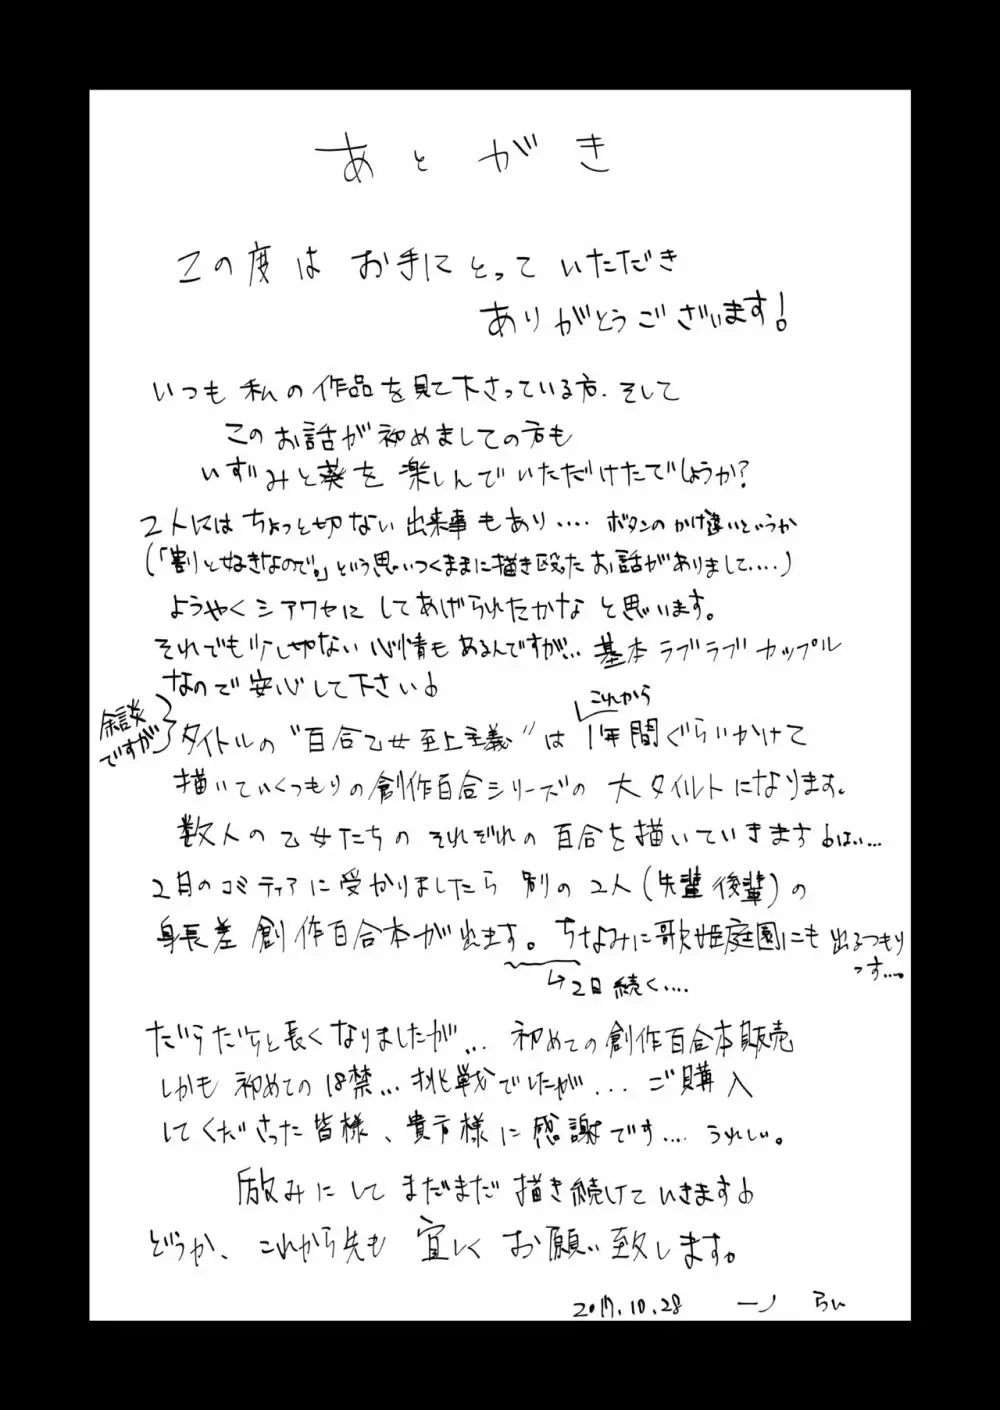 あとがき
この度は お手にとって いただき
ありがとうございます!
いつも 私の作品を見て下さっている方、そして
このお話が初めましての方も
いずみと葵を 楽しんでいただけたでしょうか?
2人には ちょっと切ない出来事もあり.... ボタンのかけ違いというか
(「割と好きなので。」という思いつくままに描き殴ったお話がありまして....)
ようやくシアワセに してあげられたかな と思います。
それでも少し切ない心情もあるんですが... 基本ラブラブカップル
なので安心して下さい♪
余談ですが
これから
タイトルの "百合乙女至上主義" は 1年間ぐらいかけて
描いていくつもりの創作百合シリーズの 大タイルトになります。
数人の乙女たちの それぞれの百合を描いていきます♪はい...
2月のコミティアに受かりましたら 別の2人(先輩後輩)の
身長差 創作百合本が出ます。ちなみに歌姫庭園にも 出るつもり
っす....。
→2日続く....
だらだらと長くなりましたが... 初めての創作百合本販売
しかも 初めての18禁... 挑戦でしたが... ご購入
してくださった皆様、貴方様に感謝です.... うれしい。
励みにして まだまだ 描き続けていきます♪
どうか、これから先も 宜しく お願い致します。
2017.10.28 一ノ